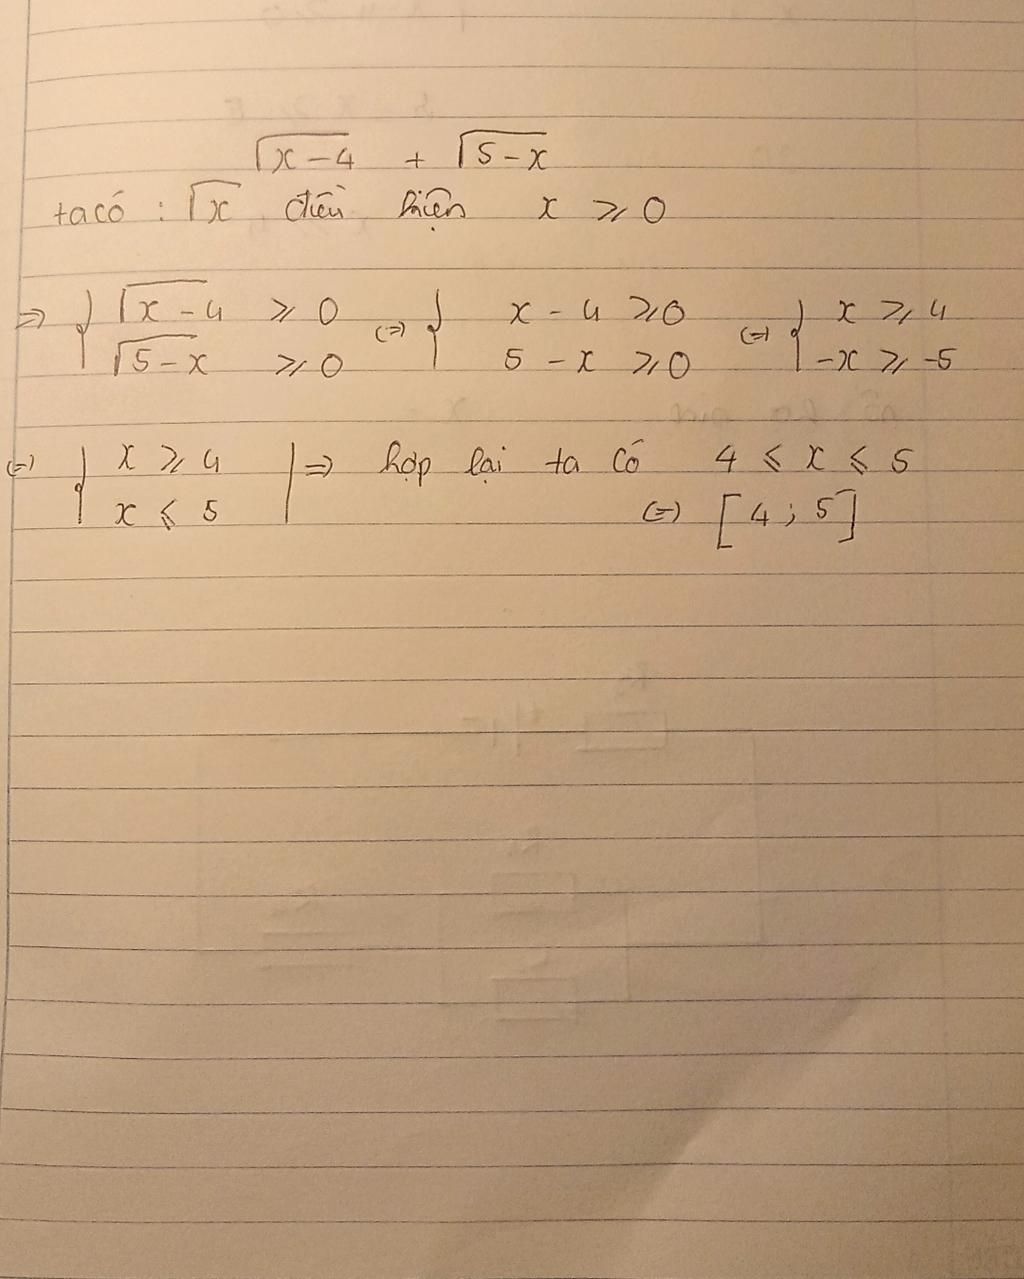 √x-4 + √5-x
ta có : √x điều kiện x ⩾ 0
=> { √x-4 ⩾ 0 (=) { x - 4 ⩾ 0 (=) { x ⩾ 4
√5-x ⩾ 0 5 - x ⩾ 0 -x ⩾ -5
(=) { x ⩾ 4 | => hợp lại ta có 4 ⩽ x ⩽ 5
x ⩽ 5 (=) [4 ; 5]